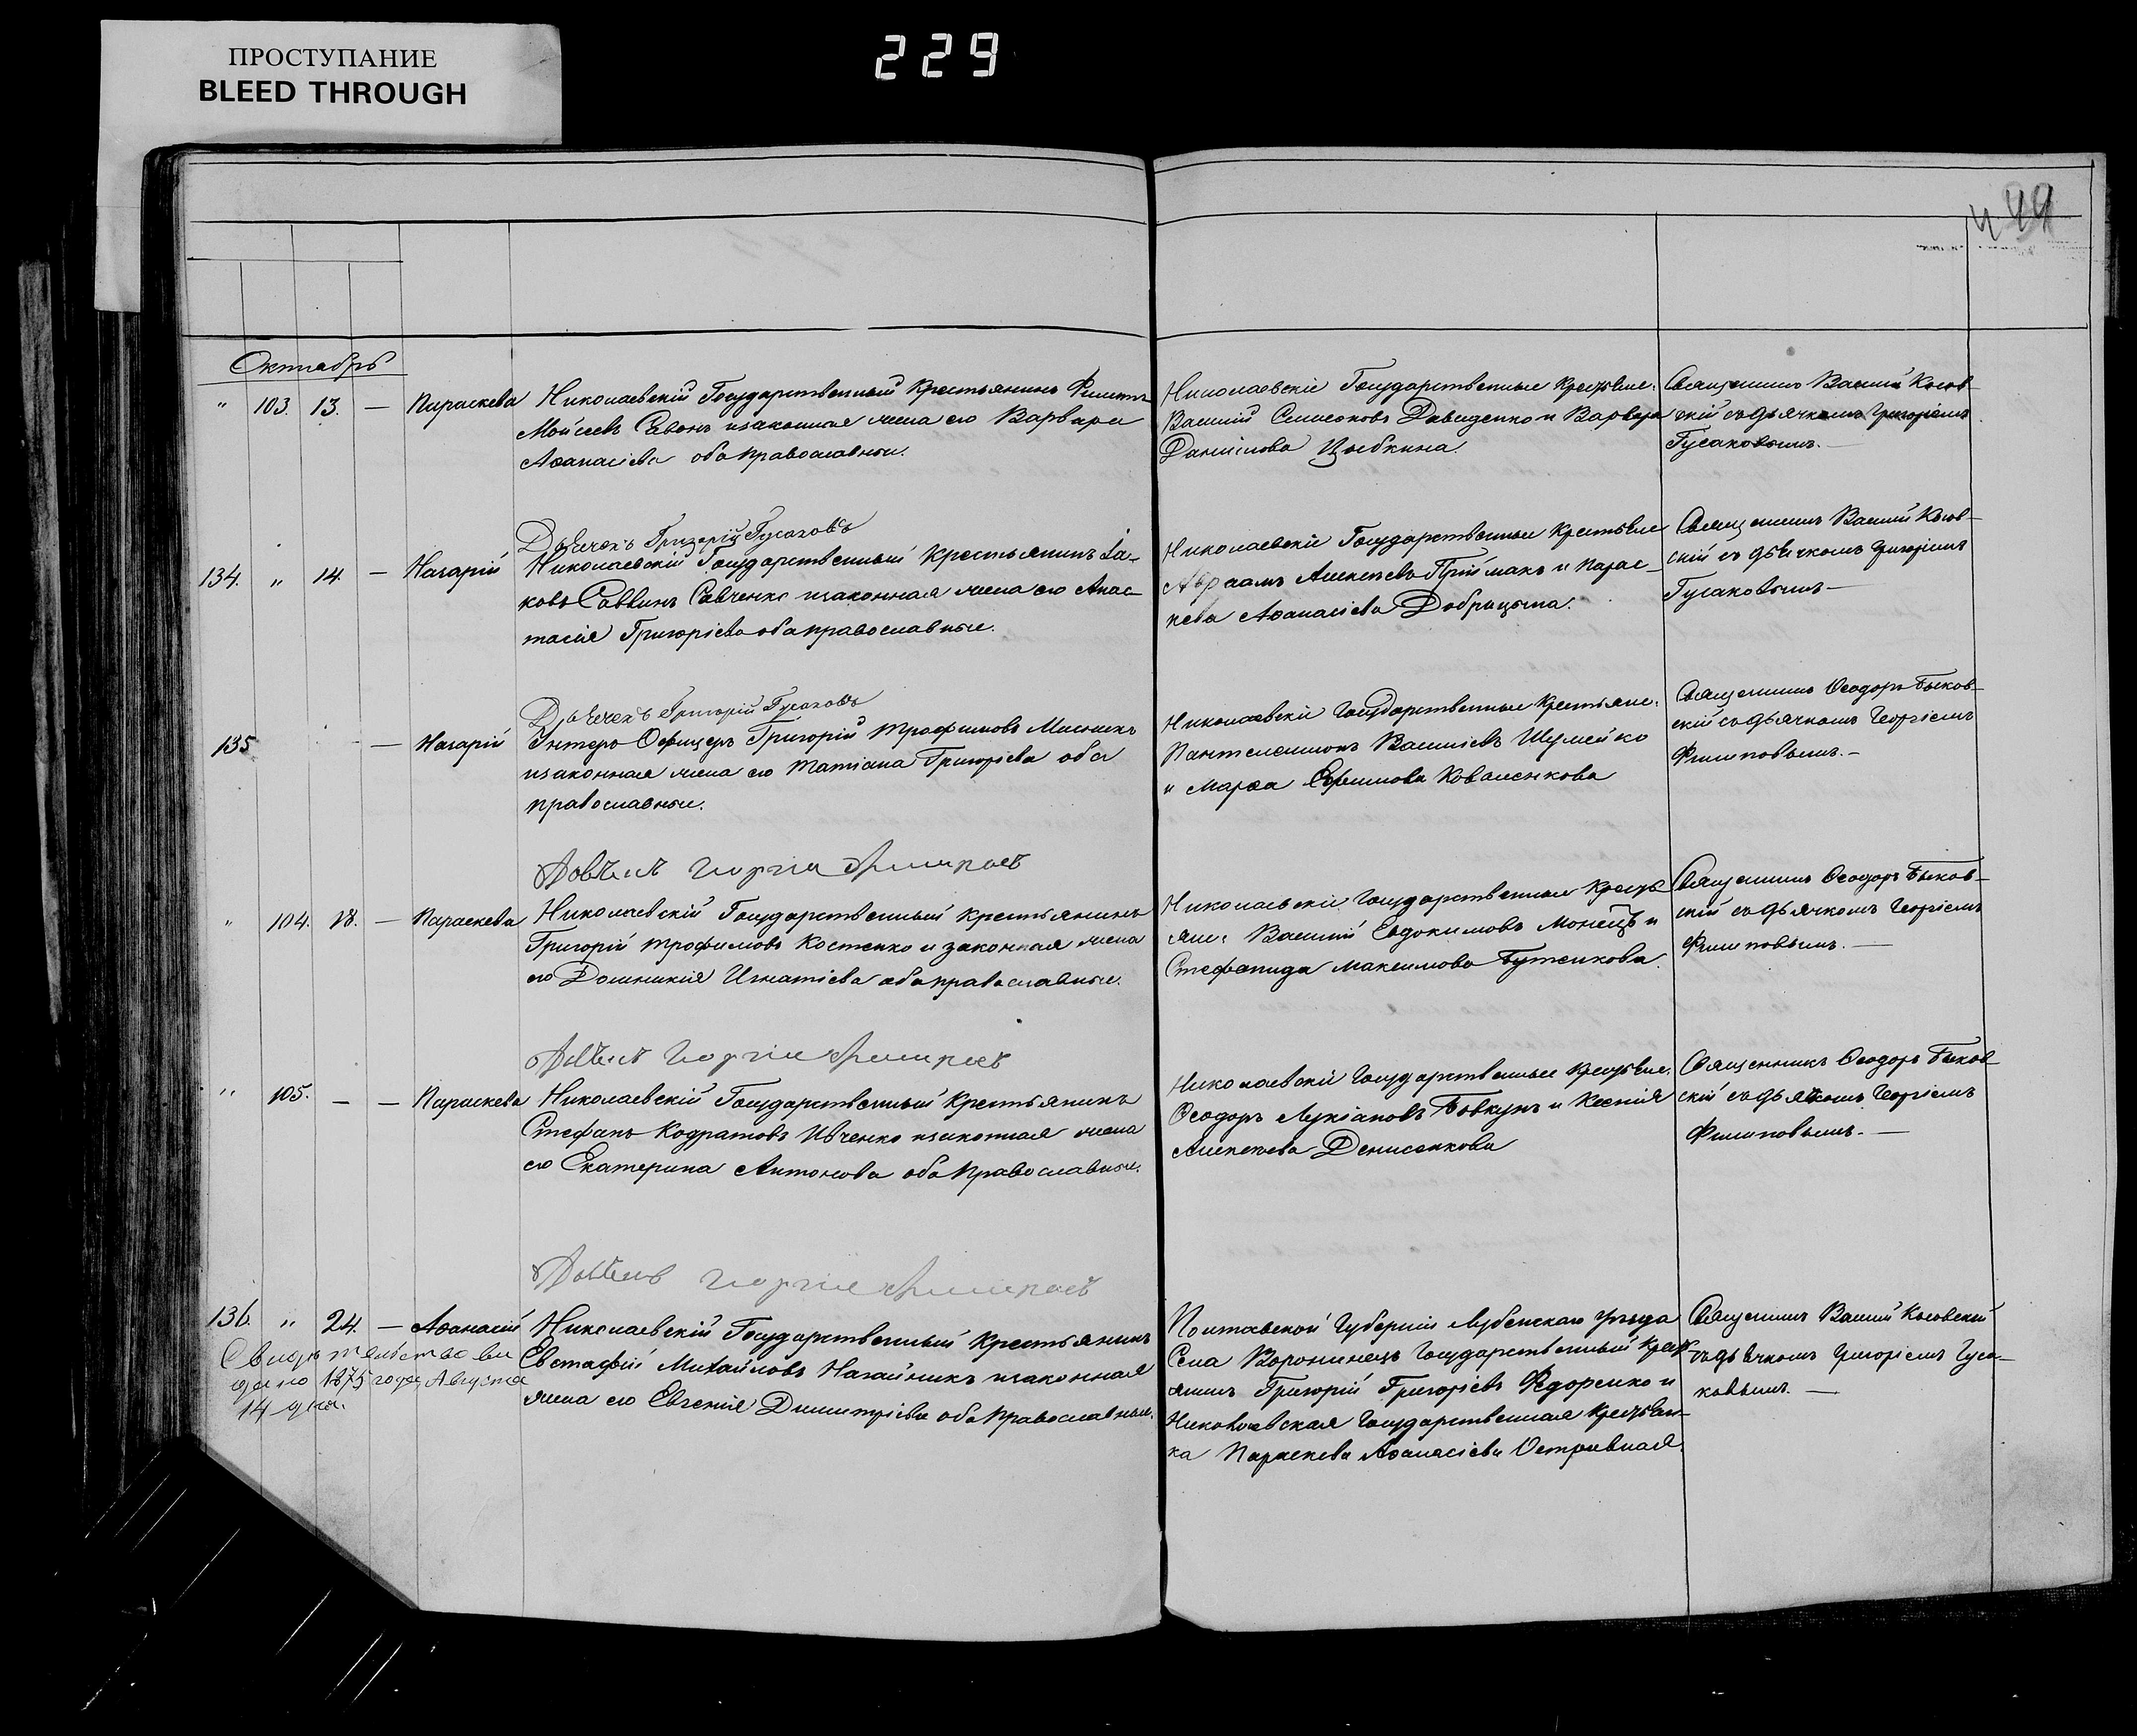 ПРОСТУПАНИЕ
BLEED THROUGH
229
Октябрь
" 103. 13. — Параскева
Николаевскій Государственный Крестьянинъ Филиппъ
Мойсеевъ Савонъ изаконная жена его Варвара
Аѳанасіева оба православные.
Николаевскіе Государственные Крестьяне:
Василій Семеоновъ Давиденко и Варвара
Даніилова Цыбкина.
Священникъ Василій Косов-
скій съ дьячкомъ Григоріемъ
Гусаковымъ.—
Дьячекъ Григорій Гусаковъ
134. " 14. — Назарій
Николаевскій Государственный Крестьянинъ Іа-
ковъ Саввинъ Савченко изаконная жена его Анас-
тасія Григоріева оба православные.
Николаевскіе Государственные Крестьяне
Авраамъ Алексѣевъ Пріймакъ и Парас-
кева Аѳанасіева Добрицына.
Священникъ Василій Косов-
скій съ дьячкомъ Григоріемъ
Гусаковымъ—
Дьячекъ Григорій Гусаковъ
135 — Назарій
Унтеръ-Офицеръ Григорій Трофимовъ Мисникъ
изаконная жена его Татіана Григоріева оба
православные.
Николаевскіе Государственные Крестьяне:
Пантелеимонъ Василіевъ Шумейко
и Марѳа Ефимова Коваленкова
Священникъ Ѳеодоръ Быков-
скій съ дьячкомъ Георгіемъ
Филиповымъ.—
" 104. 18. — Параскева
Николаевскій Государственный Крестьянинъ
Григорій Трофимовъ Костенко и законная жена
его Домникія Игнатіева оба православные.
Николаевскіе Государственные Кресть
яне: Василій Евдокимовъ Монецъ и
Стефанида Максимова Бутенкова.
Священникъ Ѳеодоръ Быков-
скій съ дьячкомъ Георгіемъ
Филиповымъ.—
" 105. — — Параскева
Николаевскій Государственный Крестьянинъ
Стефанъ Кодратовъ Ивченко изаконная жена
его Екатерина Антонова оба православные.
Николаевскіе Государственные Крестьяне.
Ѳеодоръ Лукіановъ Бовкунъ и Ксенія
Алексѣева Денисенкова
Священникъ Ѳеодоръ Быков
скій съ дьячкомъ Георгіемъ
Филиповымъ.—
136. " 24. — Аѳанасій
Николаевскій Государственный Крестьянинъ
Евстафій Михайловъ Нагайникъ изаконная
жена его Евгенія Димитріева оба православные.
Свидѣтельство вы
дано 1875 года Августа
14 дня.
Полтавской Губерніи Лубенскаго уѣзда
Села Воронинецъ Государственный Крест
янинъ Григорій Григоріевъ Ѳедоренко и
Николаевская Государственная Крестьян-
ка Параскева Аѳанасіева Остривная.
Священникъ Василій Косовскій
съ дьячкомъ Григоріемъ Гуса-
ковымъ.—